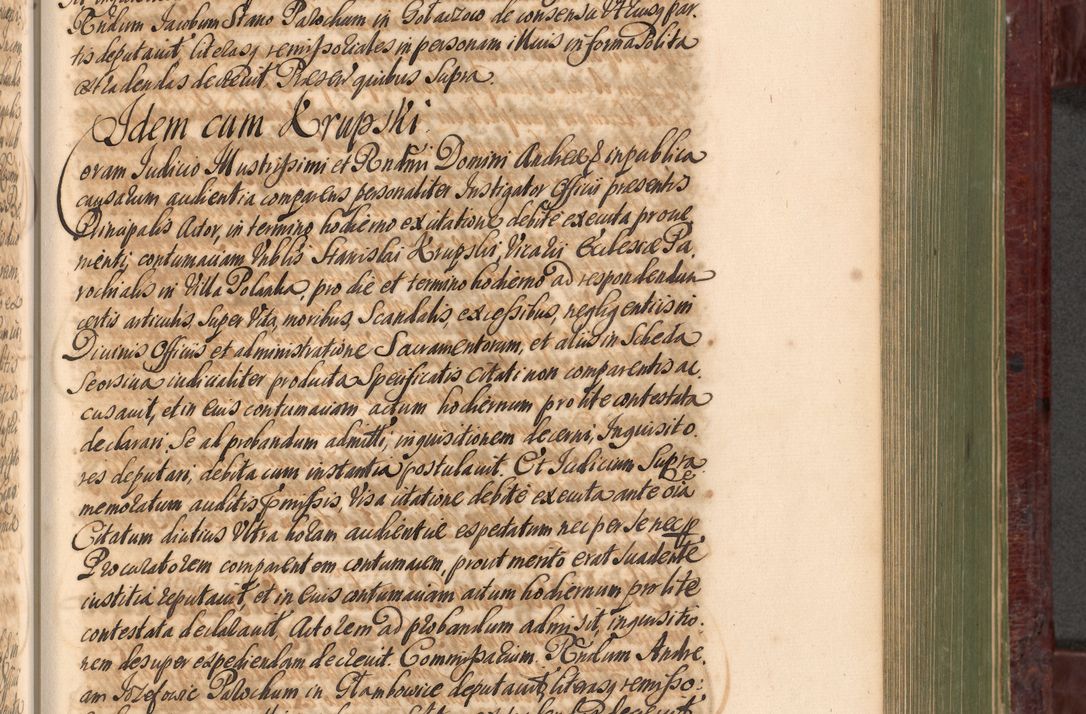 Rndum Jacobum Stano Parochum in Gotarzow de consensu Utriusq par-
tis deputavit, literasq remissoriales in personam illius in forma solita
extradendas decrevit. Praesen quibus Supra.
Idem cum Krupski.
Coram Judicio Illustrissimi et Rndmi Domini Andreae in publica
causarum audientia comparens personaliter Instigator Officii praesentis
Principalis Actor, in termino hodierno ex citatione debite executa prove-
nienti, contumaciam Vnblis Stanislai Krupski, Vicarii Ecclesiae Pa-
rochialis in Villa Polanka, pro die et termino hodierno ad respondendum
certis articulis, super vita, moribus, Scandalis, excessibus, negligentiis in
Divinis Officiis et administratione Sacramentorum, et aliis in Scheda
Seorsiva iudicialiter producta Specificatis Citati non comparentis ac-
cusavit, et in eius contumaciam actum hodiernum pro lite contestata
declarari, Se ad probandum admitti, inquisitionem decerni, Inquisito-
res deputari, debita cum instantia postulavit. Et Judicium Supra
memoratum auditis pmissis, Visa citatione debite executa ante oia
Citatum diutius Ultra horam audientiae expectatum nec per se nec p
Procuratorem comparentem contumacem, prout merito erat suadente
iustitia reputavit, et in eius contumaciam actum hodiernum pro lite
contestata declaravit, Actorem ad probandum admisit, inquisitio-
nem desuper expediendam decrevit. Commissarium Rndum Andre-
am Jozefowic Parochum in Stambowice deputavit, literasq remisso-